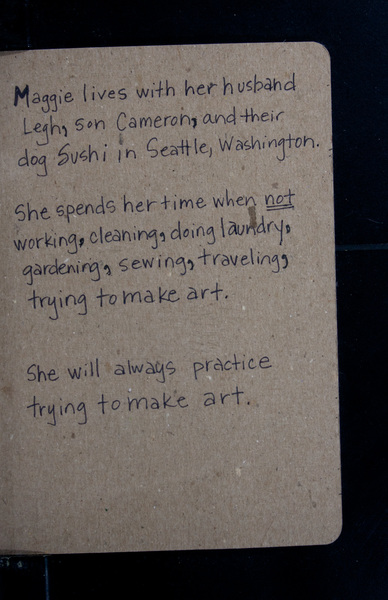 Maggie lives with her husband
Legh, son Cameron, and their
dog Sushi in Seattle, Washington.
She spends her time when not
working, cleaning, doing laundry,
gardening, sewing, traveling,
trying to make art.
She will always practice
trying to make art.